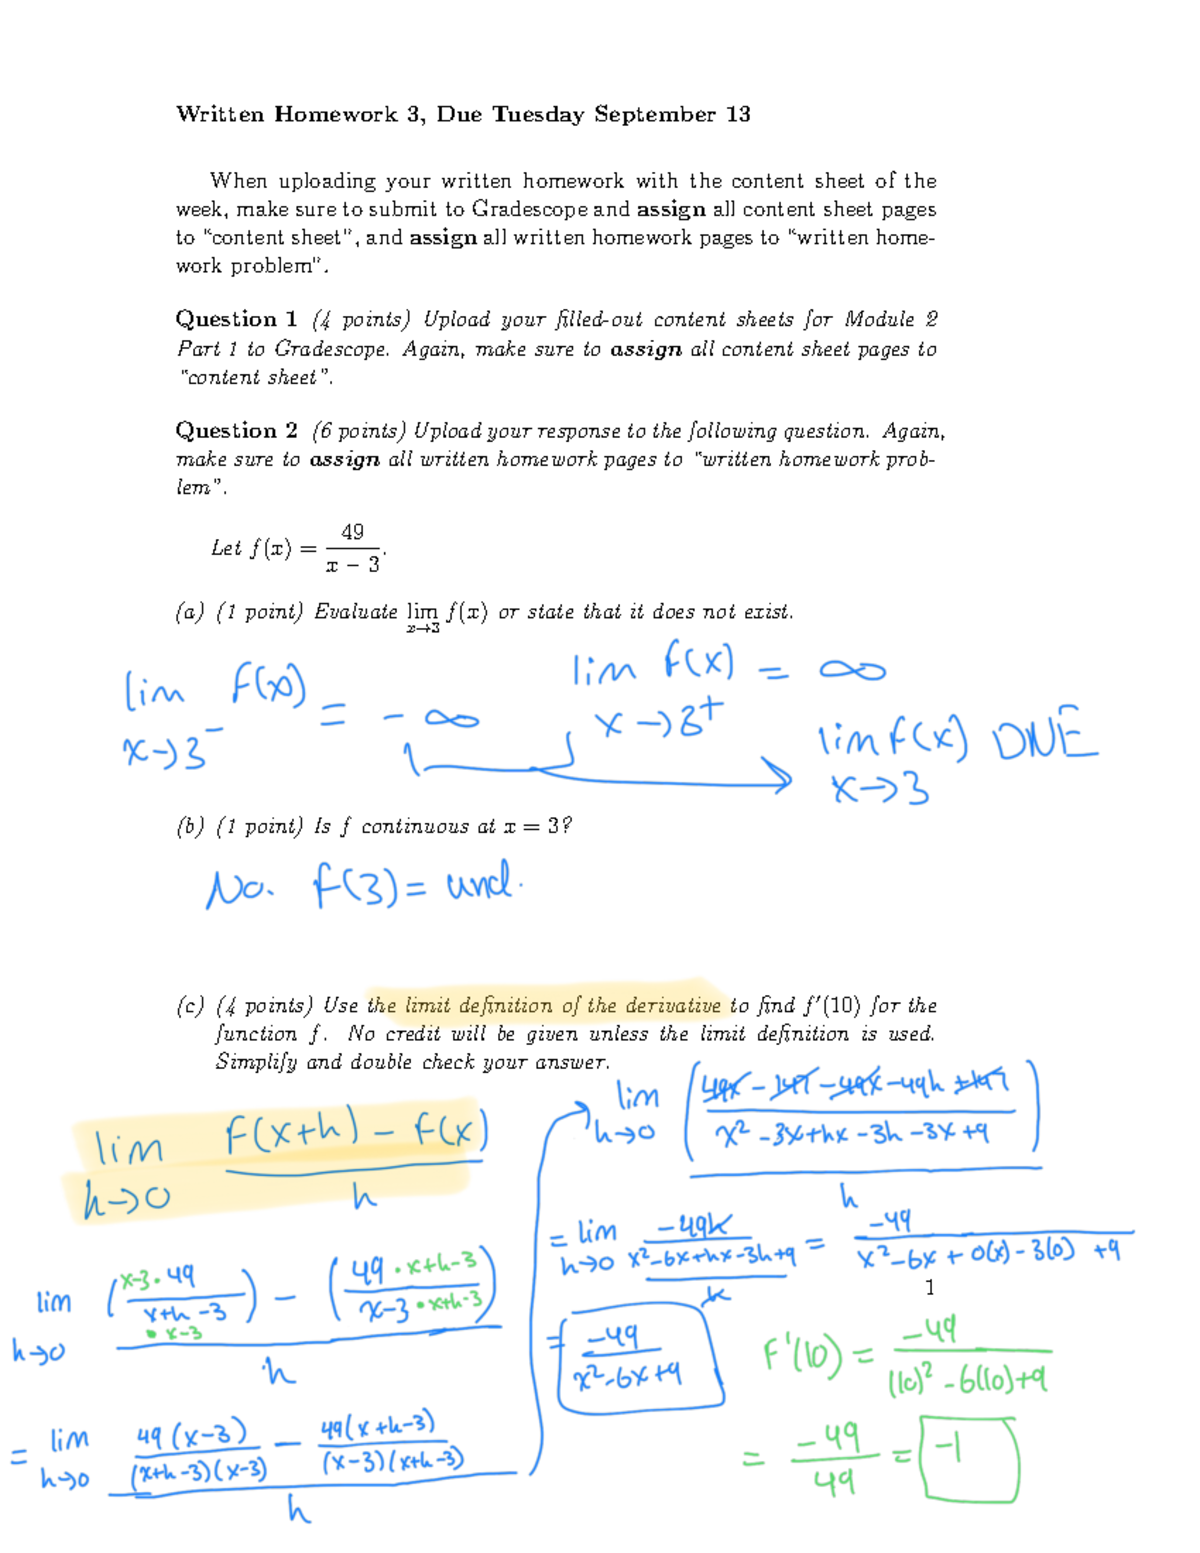 Written Homework 3, Due Tuesday September 13
When uploading your written homework with the content sheet of the
week, make sure to submit to Gradescope and assign all content sheet pages
to "content sheet", and assign all written homework pages to "written home-
work problem".
Question 1 (4 points) Upload your filled-out content sheets for Module 2
Part 1 to Gradescope. Again, make sure to assign all content sheet pages to
"content sheet".
Question 2 (6 points) Upload your response to the following question. Again,
make sure to assign all written homework pages to "written homework prob-
lem".
Let f(x) = 49/(x − 3).
(a) (1 point) Evaluate lim x→3 f(x) or state that it does not exist.
lim x→3⁻ f(x) = -∞
lim x→3⁺ f(x) = ∞
lim x→3 f(x) DNE
(b) (1 point) Is f continuous at x = 3?
No. f(3) = und.
(c) (4 points) Use the limit definition of the derivative to find f′(10) for the
function f. No credit will be given unless the limit definition is used.
Simplify and double check your answer.
lim h→0 (f(x+h) − f(x))/h
lim h→0 ((x-3 · 49)/(x+h-3 · x-3) − (49 · x+h-3)/(x-3 · x+h-3))/h
= lim h→0 (49(x-3)/((x+h-3)(x-3)) − 49(x+h-3)/((x-3)(x+h-3)))/h
lim h→0 ((49x − 147 − 49x − 49h + 147)/(x² − 3x + hx − 3h − 3x + 9))/h
= lim h→0 (-49h/(x² − 6x + hx − 3h + 9))/h = -49/(x² − 6x + 0(x) − 3(0) + 9)
= -49/(x² − 6x + 9)
1
f'(10) = -49/((10)² − 6(10) + 9)
= -49/49 = -1